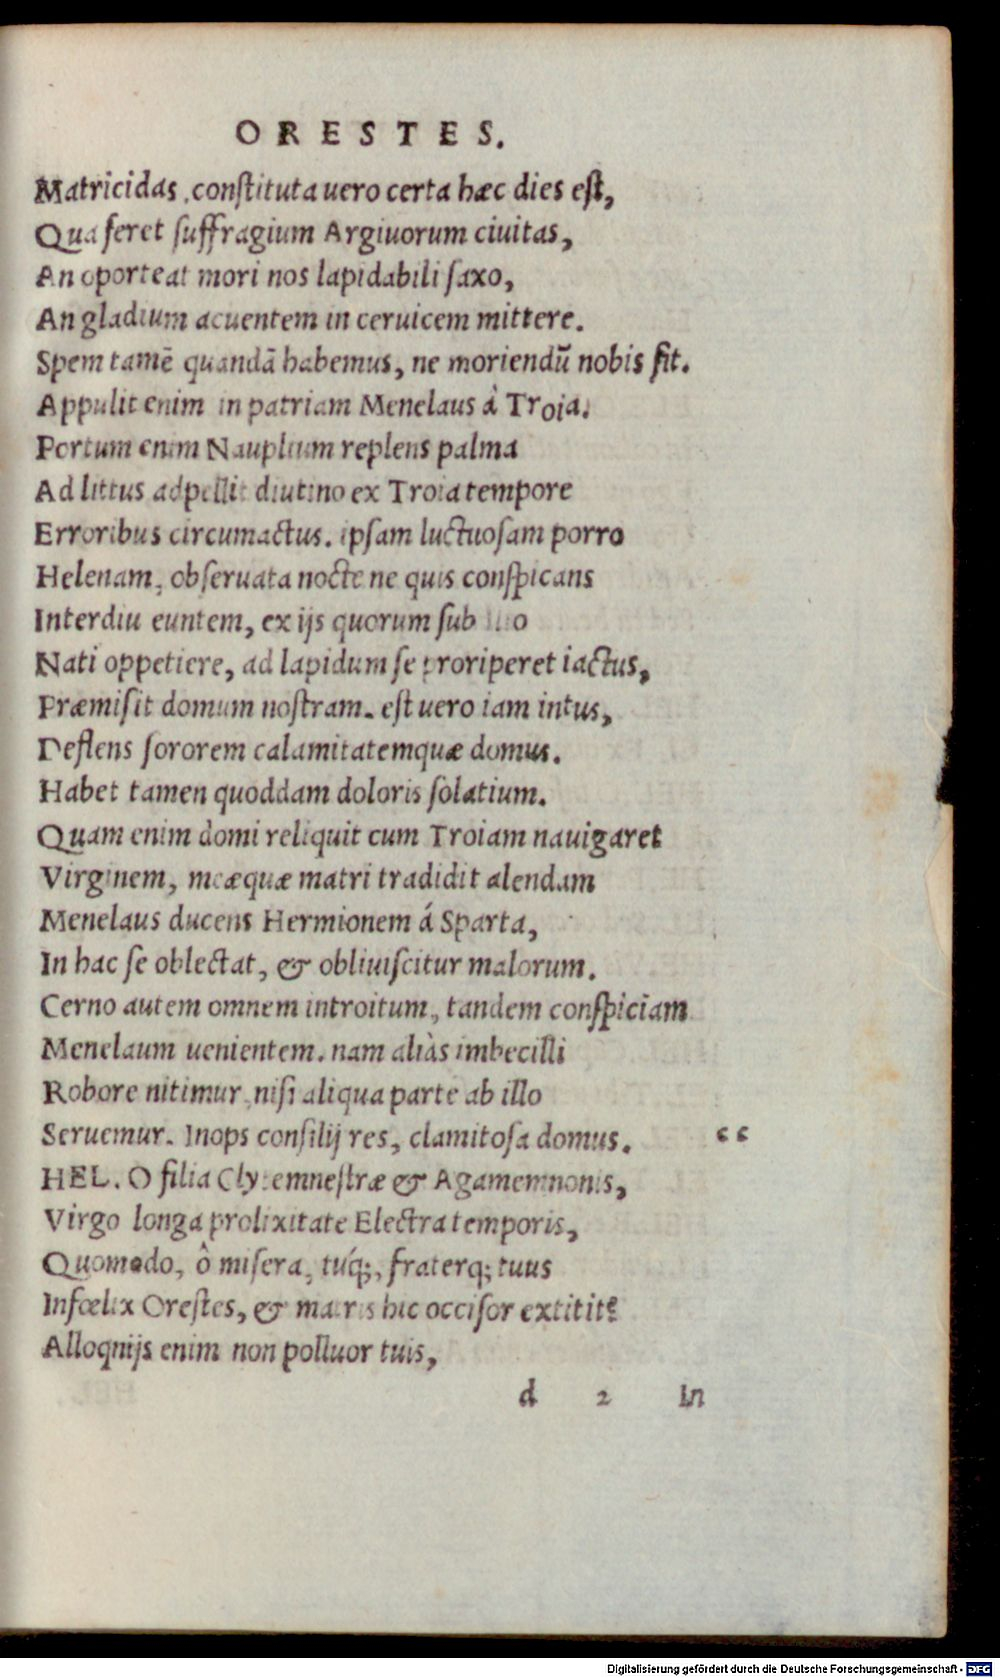 ORESTES.
Matricidas, constituta uero certa hæc dies est,
Qua feret suffragium Argiuorum ciuitas,
An oporteat mori nos lapidabili saxo,
An gladium acuentem in ceruicem mittere.
Spem tamē quandā habemus, ne moriendū nobis sit.
Appulit enim in patriam Menelaus à Troia.
Portum enim Nauplium replens palma
Ad littus adpellit diutino ex Troia tempore
Erroribus circumactus. ipsam luctuosam porro
Helenam, obseruata nocte ne quis conspicans
Interdiu euntem, ex ijs quorum sub
Nati oppetiere, ad lapidum se proriperet iactus,
Præmisit domum nostram. est uero iam intus,
Deflens sororem calamitatemquæ domus.
Habet tamen quoddam doloris solatium.
Quam enim domi reliquit cum Troiam nauigaret
Virginem, meæquæ matri tradidit alendam
Menelaus ducens Hermionem á Sparta,
In hac se oblectat, & obliuiscitur malorum.
Cerno autem omnem introitum, tandem conspiciam
Menelaum uenientem. nam aliàs imbecilli
Robore nitimur, nisi aliqua parte ab illo
Seruemur. Inops consilij res, clamitosa domus. “
HEL. O filia Clytemnestræ & Agamemnonis,
Virgo longa prolixitate Electra temporis,
Quomodo, ô misera, túq;, fraterq; tuus
Infœlix Orestes, & matris hic occisor extitit?
Alloquijs enim non polluor tuis,
d 2 In
Digitalisierung gefördert durch die Deutsche Forschungsgemeinschaft - DFG